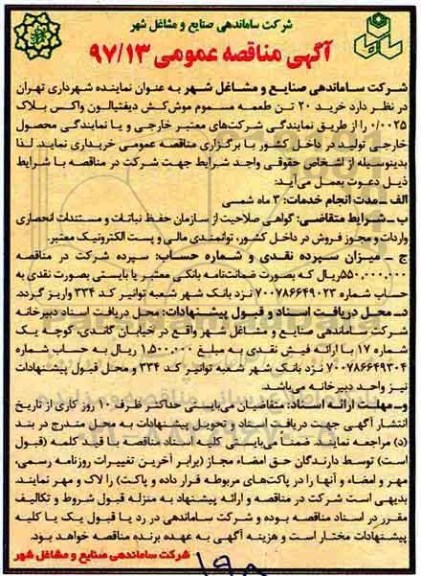 شرکت ساماندهی صنایع و مشاغل شهر
آگهی مناقصه عمومی ۹۷/۱۳
شرکت ساماندهی صنایع و مشاغل شهر به عنوان نماینده شهرداری تهران
در نظر دارد خرید ۲۰ تن طعمه مسموم موش‌کش دیفتیالون واکس بلاک
۰/۰۰۲۵ را از طریق نمایندگی شرکت‌های معتبر خارجی و یا نمایندگی محصول
خارجی تولید در داخل کشور با برگزاری مناقصه عمومی خریداری نماید. لذا
بدینوسیله از اشخاص حقوقی واجد شرایط جهت شرکت در مناقصه با شرایط
ذیل دعوت بعمل می‌آید:
الف ـ مدت انجام خدمات: ۳ ماه شمسی
ب ـ شرایط متقاضی: گواهی صلاحیت از سازمان حفظ نباتات و مستندات انحصاری
واردات و مجوز فروش در داخل کشور، توانمندی مالی و پست الکترونیک معتبر.
ج ـ میزان سپرده نقدی و شماره حساب: سپرده شرکت در مناقصه
۵۵۰.۰۰۰.۰۰۰ریال که بصورت ضمانت‌نامه بانکی معتبر یا بایستی بصورت نقدی به
حساب شماره ۷۰۰۷۸۶۶۴۹۰۲۳ نزد بانک شهر شعبه توانیر کد ۳۳۴ واریز گردد.
د ـ محل دریافت اسناد و قبول پیشنهادات: محل دریافت اسناد دبیرخانه
شرکت ساماندهی صنایع و مشاغل شهر واقع در خیابان گاندی، کوچه یک
شماره ۱۷ با ارائه فیش نقدی به مبلغ ۱.۵۰۰.۰۰۰ ریال به حساب شماره
۷۰۰۷۸۶۶۴۹۳۰۴ نزد بانک شهر شعبه توانیر کد ۳۳۴ و محل قبول پیشنهادات
نیز واحد دبیرخانه می‌باشد.
و ـ مهلت ارائه اسناد: متقاضیان می‌بایستی حداکثر ظرف ۱۰ روز کاری از تاریخ
انتشار آگهی جهت دریافت اسناد و تحویل پیشنهادات به محل مندرج در بند
(د) مراجعه نمایند. ضمناً می‌بایستی کلیه اسناد مناقصه با قید کلمه (قبول
است) توسط دارندگان حق امضاء مجاز (برابر آخرین تغییرات روزنامه رسمی،
مهر و امضاء و آنها را در پاکت‌های مربوطه قرار داده و پاکت) را لاک و مهر نمایند.
بدیهی است شرکت در مناقصه و ارائه پیشنهاد به منزله قبول شروط و تکالیف
مقرر در اسناد مناقصه بوده و شرکت ساماندهی در رد یا قبول یک یا کلیه
پیشنهادات مختار است و هزینه آگهی به عهده برنده مناقصه خواهد بود.
شرکت ساماندهی صنایع و مشاغل شهر